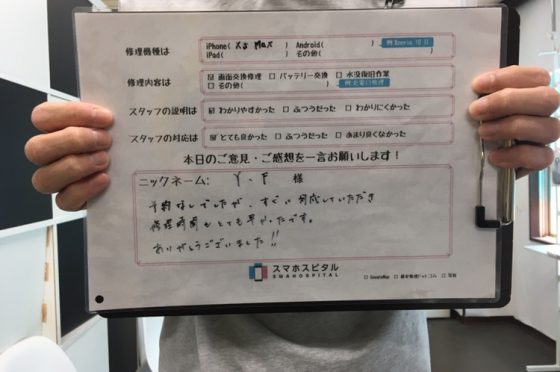 修理機種は iPhone( Xs Max ) Android( ) 例:Xperia 10 II
iPad( ) その他( )
修理内容は ☑ 画面交換修理 □ バッテリー交換 □ 水没復旧作業
□ その他( ) 例:充電口修理
スタッフの説明は ☑ わかりやすかった □ ふつうだった □ わかりにくかった
スタッフの対応は ☑ とても良かった □ ふつうだった □ あまり良くなかった
本日のご意見・ご感想を一言お願いします!
ニックネーム: Y.F 様
予約なしでしたが、すぐに対応していただき
修理時間もとても早かったです。
ありがとうございました!!
スマホスピタル
SMAHOSPITAL
□ GoogleMap □ 最安修理ドットコム □ 写真